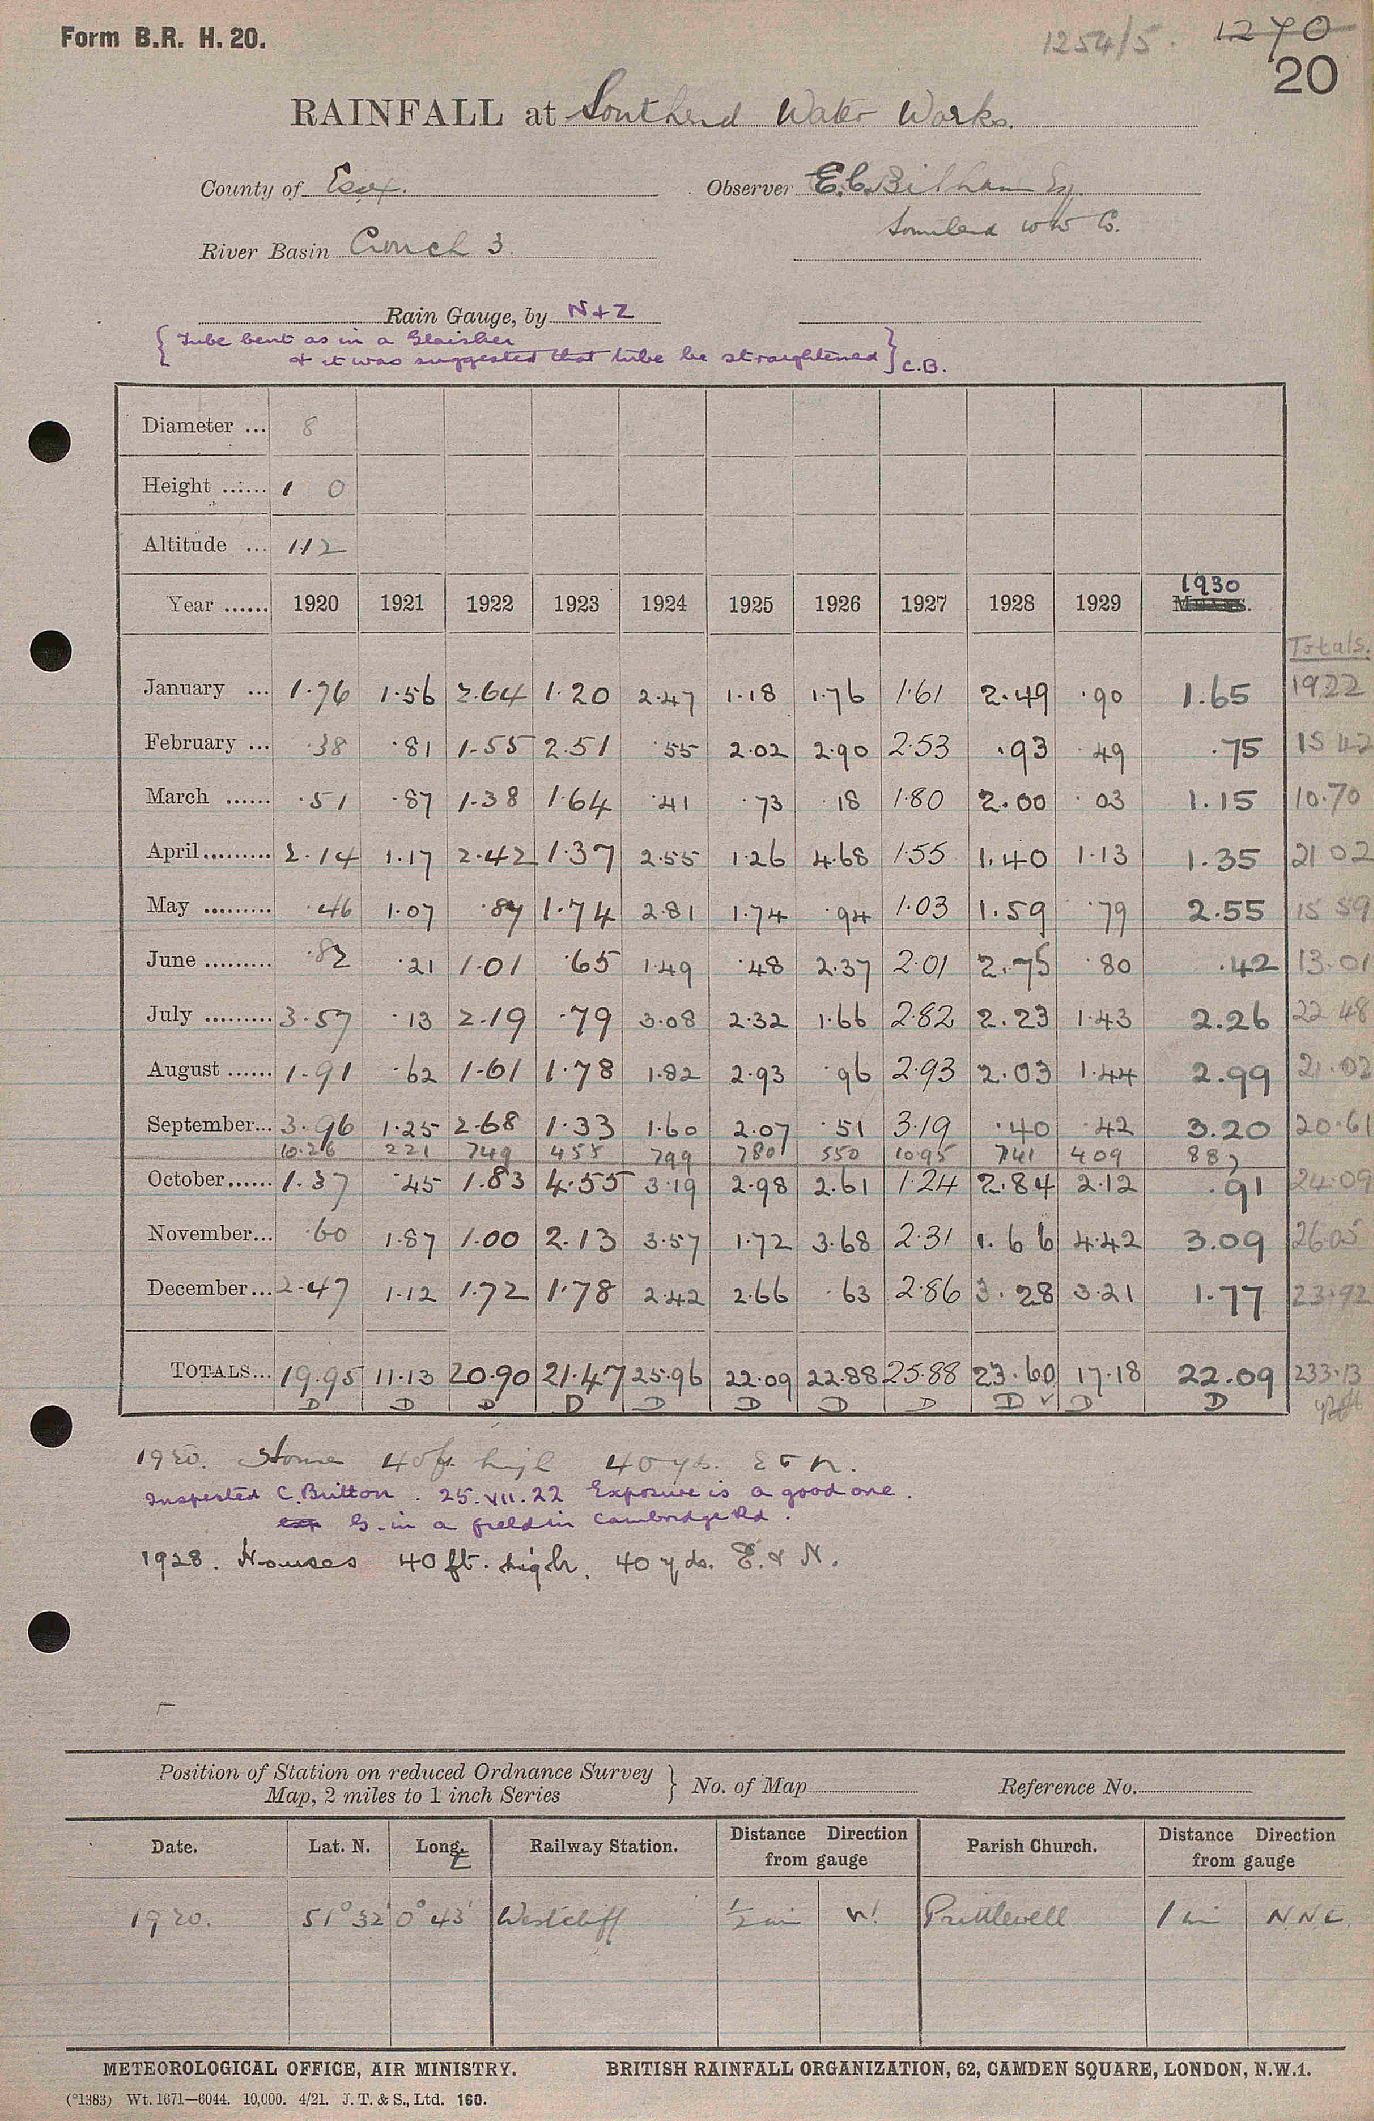 Form B.R. H. 20.
1254/5. 1270
20
RAINFALL at Southend Water Works.
County of Essex. Observer E.C. Bilham Esq
River Basin Crouch 3. Southend W W Co.
Rain Gauge, by N+Z
{ Tube bent as in a Glaisher
+ it was suggested that tube be straightened } C.B.
Diameter ... 8
Height ...... 1 0
Altitude ... 112
Year ...... 1920 1921 1922 1923 1924 1925 1926 1927 1928 1929 1930
Totals.
January ... 1.76 1.56 2.64 1.20 2.47 1.18 1.76 1.61 2.49 .90 1.65 19.22
February ... .38 .81 1.55 2.51 .55 2.02 2.90 2.53 .93 .49 .75 15 42
March ...... .51 .87 1.38 1.64 .41 .73 .18 1.80 2.00 .03 1.15 10.70
April ......... 2.14 1.17 2.42 1.37 2.55 1.26 4.68 1.55 1.40 1.13 1.35 21 02
May ......... .46 1.07 .87 1.74 2.81 1.74 .94 1.03 1.59 .79 2.55 15 59
June ......... .82 .21 1.01 .65 1.49 .48 2.37 2.01 2.75 .80 .42 13.01
July ......... 3.57 .13 2.19 .79 3.08 2.32 1.66 2.82 2.23 1.43 2.26 22 48
August ...... 1.91 .62 1.61 1.78 1.82 2.93 .96 2.93 2.03 1.44 2.99 21.02
September... 3.96 1.25 2.68 1.33 1.60 2.07 .51 3.19 .40 .42 3.20 20.61
10.26 221 749 455 799 780 550 1095 741 409 887
October...... 1.37 .45 1.83 4.55 3.19 2.98 2.61 1.24 2.84 2.12 .91 24.09
November... .60 1.87 1.00 2.13 3.57 1.72 3.68 2.31 1.66 4.42 3.09 26.05
December... 2.47 1.12 1.72 1.78 2.42 2.66 .63 2.86 3.28 3.21 1.77 23.92
TOTALS... 19.95 11.13 20.90 21.47 25.96 22.09 22.88 25.88 23.60 17.18 22.09 233.13
D D D D D D D D ✓ D D
1920. House 40 ft. high 40 yds. E & N.
Inspected C. Britton. 25.VII.22 Exposure is a good one.
G. in a field in Cambridge Rd.
1928. Houses 40 ft. high, 40 yds. E. & N.
Position of Station on reduced Ordnance Survey
Map, 2 miles to 1 inch Series } No. of Map Reference No.
Date. Lat. N. Long. E Railway Station. Distance Direction from gauge Parish Church. Distance Direction from gauge
1920. 51° 32' 0° 43' Westcliff ½ mi W. Prittlewell 1 mi NNE
METEOROLOGICAL OFFICE, AIR MINISTRY. BRITISH RAINFALL ORGANIZATION, 62, CAMDEN SQUARE, LONDON, N.W.1.
(*1383) Wt. 1671—6044. 10,000. 4/21. J. T. & S., Ltd. 160.